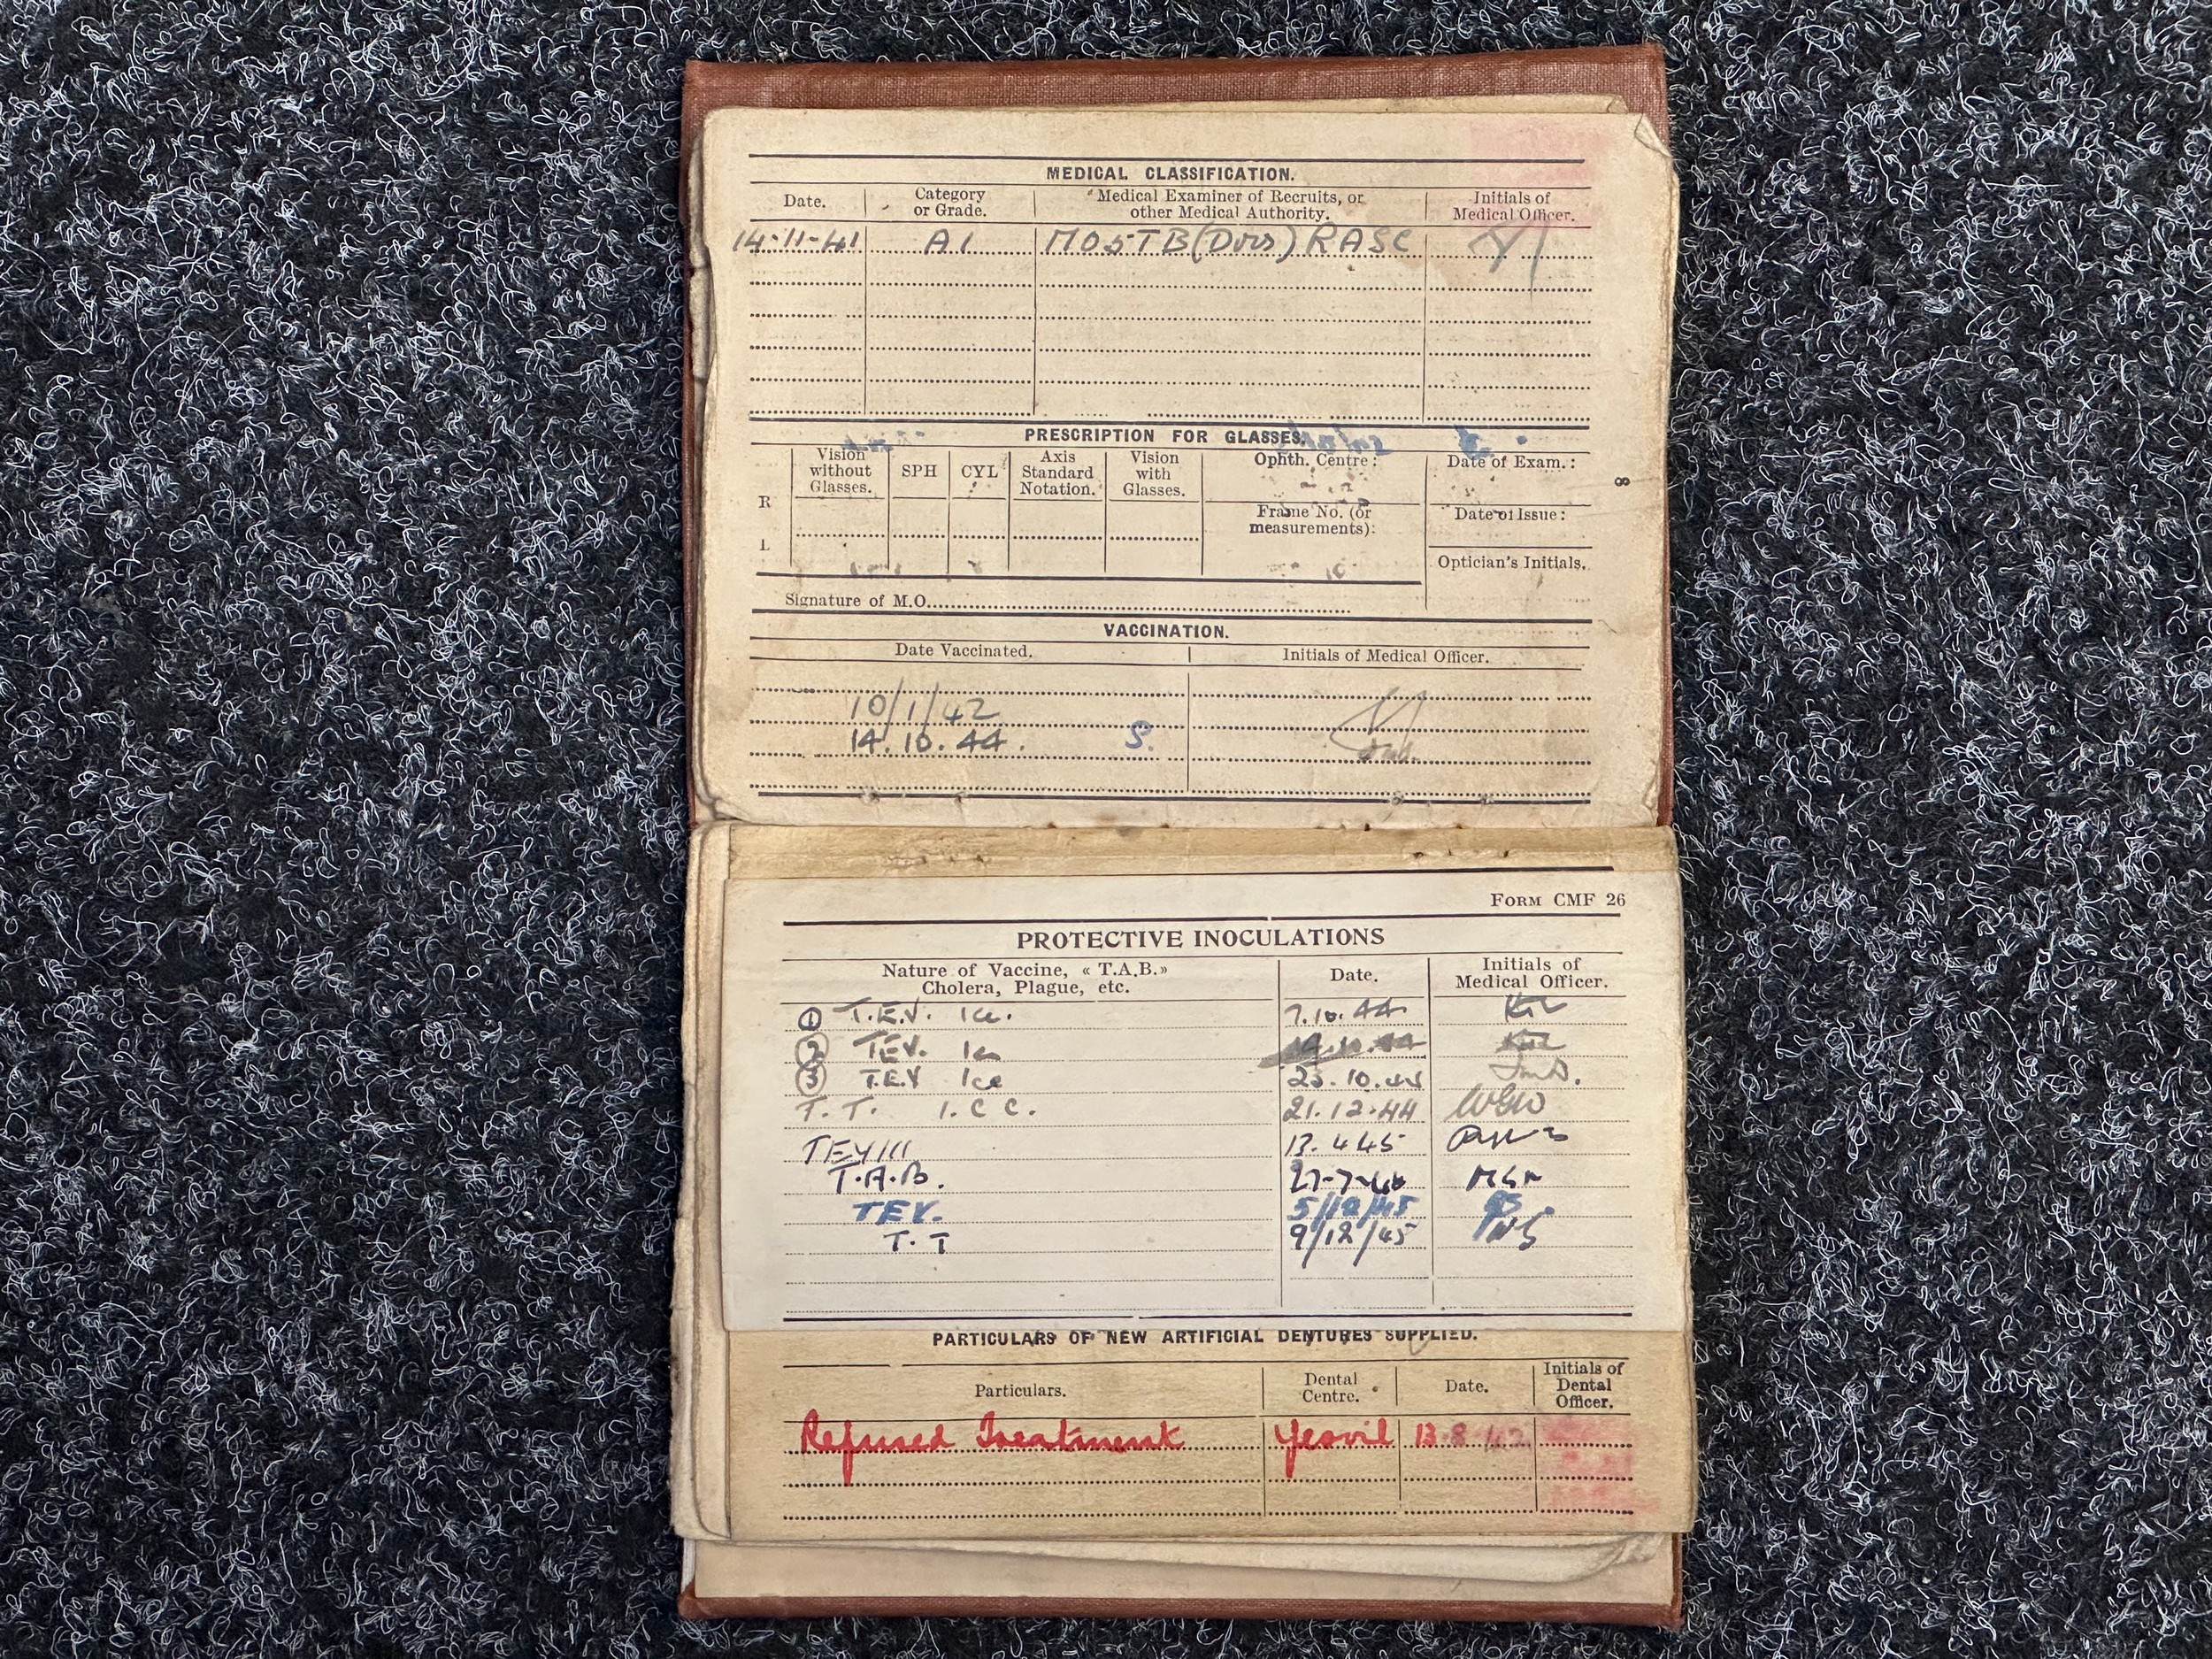 MEDICAL CLASSIFICATION.
Date. Category or Grade. Medical Examiner of Recruits, or other Medical Authority. Initials of Medical Officer.
14-11-41 A1 RASC
PRESCRIPTION FOR GLASSES.
Vision without Glasses. SPH CYL Axis Standard Notation. Vision with Glasses. Ophth. Centre: Date of Exam.:
R Frame No. (or measurements): Date of Issue:
L Optician's Initials.
Signature of M.O.
8
VACCINATION.
Date Vaccinated. Initials of Medical Officer.
10/1/42
14.10.44. S.
FORM CMF 26
PROTECTIVE INOCULATIONS
Nature of Vaccine, « T.A.B.» Cholera, Plague, etc. Date. Initials of Medical Officer.
① T.E.V. 1cc. 7.10.44
② TEV. 1cc
③ T.E.V 1cc 10.44
T.T. 1.C C. 21.12.44 WGW
TEV III 13.4 45
T.A.B. 27-7-
TEV. 5/12/45
T.T 9/12/45
PARTICULARS OF NEW ARTIFICIAL DENTURES SUPPLIED.
Particulars. Dental Centre. Date. Initials of Dental Officer.
Refused Treatment Yeovil 13.8.42